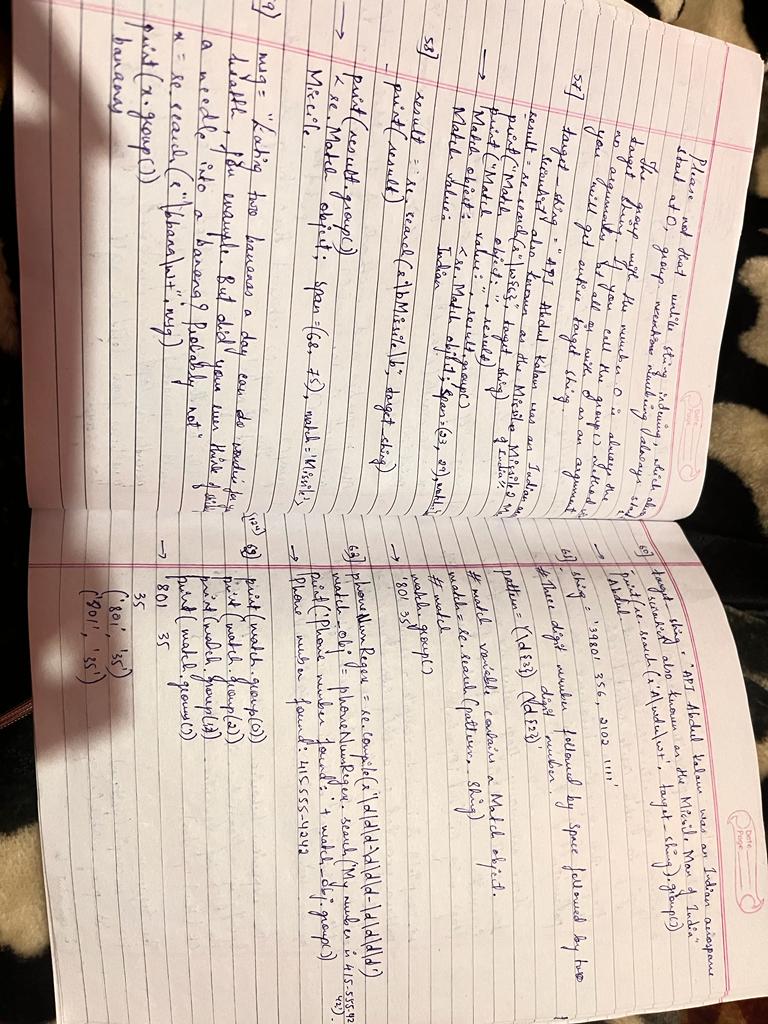 Please not that unlike string indexing, which always
start at 0, group numbering always star
The group with the number 0 is always the
target string. If you call the group() method w
no arguments at all or with 0 as an argument
you will get entire target string.
57] target_string = "APJ Abdul Kalam was an Indian
scientist also known as the Missile Man of India"
result = re.search(r"\w{6}", target_string)
print("Match object: ", result)
print("Match value: ", result.group()
→ Match object: <re.Match object; span=(23, 29), match=
Match value: Indian
58] result = re.search(r"\bMissile\b", target_string)
print(result)
print(result.group()
→ <re.Match object; span=(68, 75), match='Missile'>
Missile
9] msg = "Eating two bananas a day can do wonders for
health, for example. But did you ever think of
a needle into a banana? Probably not"
x = re.search(r"\bbana\w+", msg)
print(x.group())
bananas
Date
Page
60] target_string = "APJ Abdul Kalam was an Indian aerospace
scientist also known as the Missile Man of India"
print(re.search(r'A\wdu\w+', target_string).group()
→ 'Abdul
61] string = '39801 356, 2102 1111'
# Three digit number followed by space followed by two
digit number.
pattern = '(\d{3}) (\d{2})'
# match variable contains a Match object.
match = re.search(pattern, string)
# match
match.group()
→ '801 35'
62] phoneNumRegex = re.compile(r'\d\d\d-\d\d\d-\d\d\d\d')
match_obj = phoneNumRegex.search('My number is 415-555-42
42').
print('Phone number found: ' + match_obj.group()
→ Phone number found: 415555-4242
print(match.group(0))
print(match.group(2))
print(match.group(1))
print(match.groups()
→ 801 35
35
('801', '35')
('801', '35')